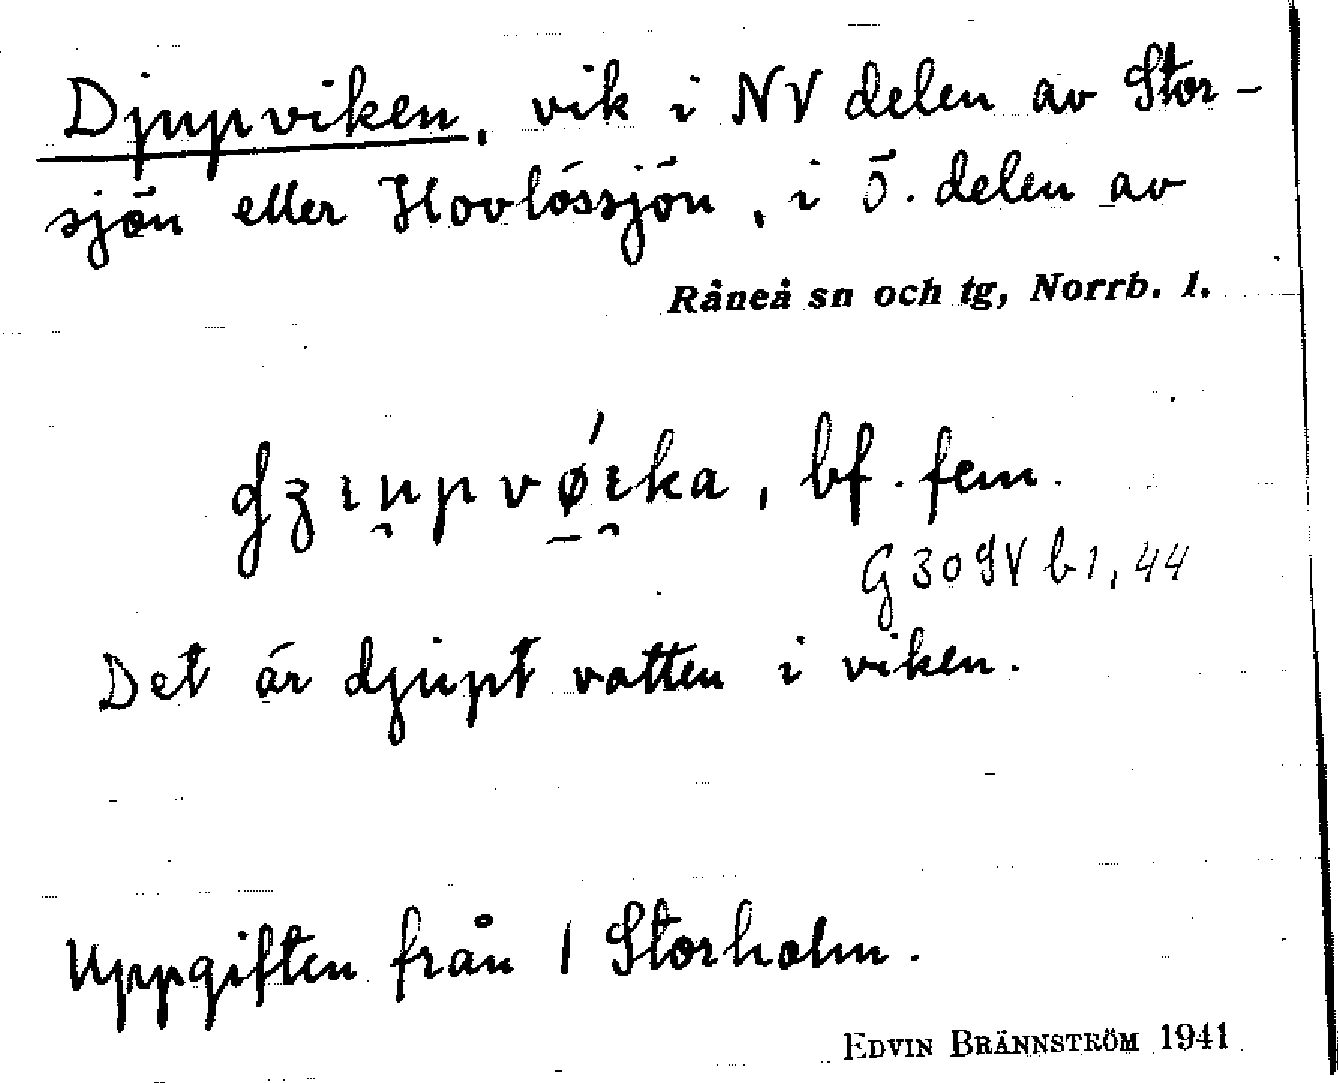 Djupviken, vik i NV delen av Stor-
sjön eller Hovlössjön, i Ö. delen av
Råneå sn och tg, Norrb. l.
bf. fem.
Det är djupt vatten i viken.
Uppgiften från 1 Storholm.
EDVIN BRÄNNSTRÖM 1941